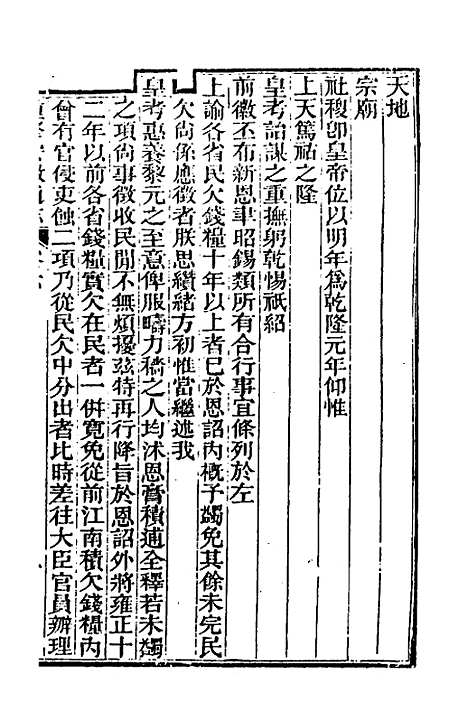 天地
宗廟
社稷卽皇帝位以明年爲乾隆元年仰惟
上天篤祜之隆
皇考詒謀之重撫躬乾惕祇紹
前徽丕布新恩聿昭錫類所有合行事宜條列於左
上諭各省民欠錢糧十年以上者已於恩詔內概予蠲免其餘未完民
欠尙係應徵者朕思纘緒方初惟當繼述我
皇考惠養黎元之至意俾服疇力穡之人均沐恩膏積逋全釋若未蠲
之項尙事徵收民閒不無煩擾茲特再行降旨於恩詔外將雍正十
二年以前各省錢糧實欠在民者一併寬免從前江南積欠錢糧內
曾有官侵吏蝕二項乃從民欠中分出者比時差往大臣官員辦理